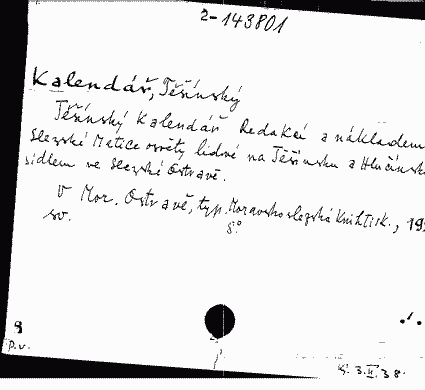 2-143801
Kalendář, Těšínský
Těšínský Kalendář Redakcí a nákladem
Slezské Matice osvěty lidové na Těšínsku a Hlučínsku
sídlem ve Slezské Ostravě.
V Mor. Ostravě, typ. Moravskoslezská Knihtisk., 19
sv. 8°
9
D.v.
K. 3.II.38.